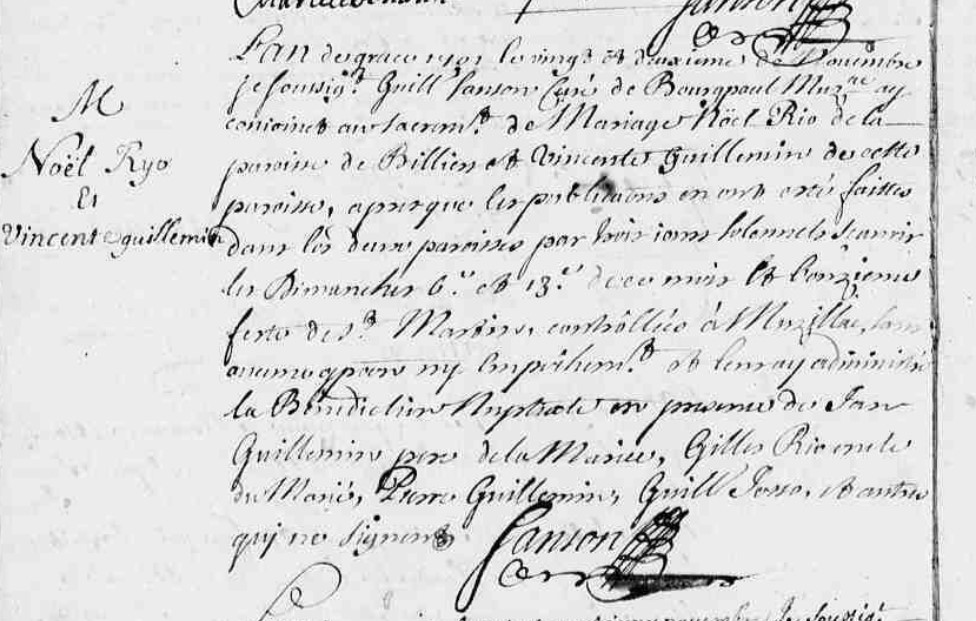 Sanson
L'An de grace le vingt et deuxieme de Novembre
je soussig.t Guill Sanson Curé de Bourgpaul Muz.re ay
conioinct au Sacrem.t de Mariage Nöel Rio de la
M
Noël Ryo
Et
Vincente guillemin
paroisse de Billiers et Vincente Guillemin de cette
paroisse, apres que les publications en ont esté faittes
dans les deux paroisses par trois iours solennels sçavoir
les Dimanches 6.e et 13.e de ce mois et l'onzieme
feste de S.t Martin, contröllées à Muzillac, sans
aucune opposõn ny empeschem.t et leur ay administré
la Benediction Nuptiale en presence de Jan
Guillemin pere de la Mariée, Gilles Rio oncle
du Marié, Pierre Guillemin, Guill Josso, et autres
qui ne signent
Sanson